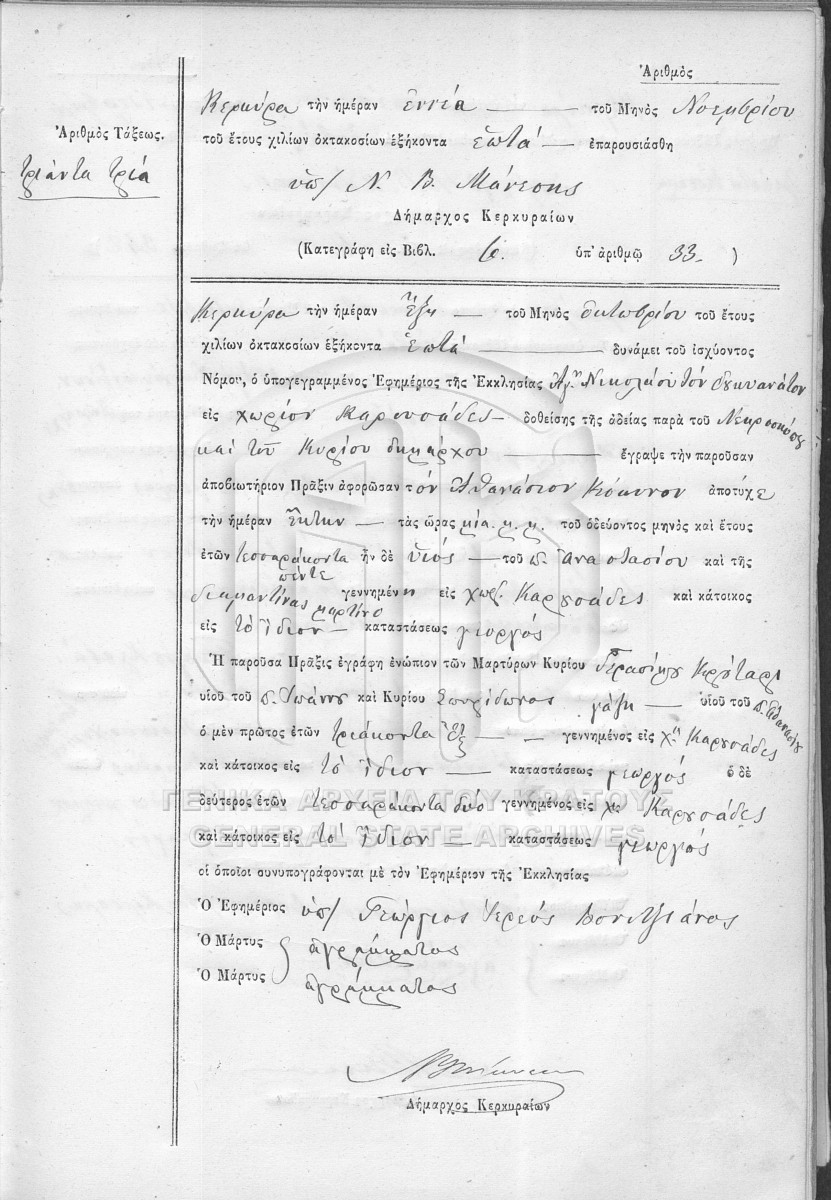 Ἀριθμὸς
Κερκύρα τὴν ἡμέραν ἐννέα τοῦ Μηνὸς Νοεμβρίου
Ἀριθμὸς Τάξεως.
τοῦ ἔτους χιλίων ὀκτακοσίων ἑξήκοντα ἑπτά ἐπαρουσιάσθη
τριάντα τρία
ὑπ/ Ν. Β. Μάνεσης
Δήμαρχος Κερκυραίων
(Κατεγράφη εἰς Βιβλ. 6. ὑπ' ἀριθμῷ 33. )
Κερκύρα τὴν ἡμέραν ἕξη τοῦ Μηνὸς ὀκτωβρίου τοῦ ἔτους
χιλίων ὀκτακοσίων ἑξήκοντα ἑπτά δυνάμει τοῦ ἰσχύοντος
Νόμου, ὁ ὑπογεγραμμένος Ἐφημέριος τῆς Ἐκκλησίας Ἁγ. Νικολάου
εἰς χωρίον Καρουσάδες δοθείσης τῆς ἀδείας παρὰ τοῦ Νεκροσκόπου
καὶ τοῦ Κυρίου δημάρχου ἔγραψε τὴν παροῦσαν
ἀποβιωτήριον Πρᾶξιν ἀφορῶσαν τὸν Ἀθανάσιον Κόκκινον ἀποτύχε
τὴν ἡμέραν ἕκτην τὰς ὥρας μία. μ. μ. τοῦ ὁδεύοντος μηνὸς καὶ ἔτους
ἐτῶν τεσσαράκοντα πέντε ἦν δὲ υἱός τοῦ π. Ἀναστασίου καὶ τῆς
διαμαντίνας μαρτίνο γεννημένη εἰς χωρ. Καρουσάδες καὶ κάτοικος
εἰς τὸ ἴδιον καταστάσεως γεωργός
Ἡ παροῦσα Πρᾶξις ἐγράφη ἐνώπιον τῶν Μαρτύρων Κυρίου Γερασίμου
υἱοῦ τοῦ π. Ἰωάννου καὶ Κυρίου Σπυρίδωνος υἱοῦ τοῦ π. Ἀθανασίου
ὁ μὲν πρῶτος ἐτῶν τριάκοντα ἕξ γεννημένος εἰς χ. Καρουσάδες
καὶ κάτοικος εἰς τὸ ἴδιον καταστάσεως γεωργός ὁ δὲ
δεύτερος ἐτῶν τεσσαράκοντα δυό γεννημένος εἰς χ. Καρουσάδες
καὶ κάτοικος εἰς τὸ ἴδιον καταστάσεως γεωργός
οἱ ὁποῖοι συνυπογράφονται μὲ τὸν Ἐφημέριον τῆς Ἐκκλησίας
Ὁ Ἐφημέριος ὑπ/ Γεώργιος Ἱερεύς Βονιτζιάνος
Ὁ Μάρτυς ἀγράμματος
Ὁ Μάρτυς ἀγράμματος
Δήμαρχος Κερκυραίων
ΓΕΝΙΚΑ ΑΡΧΕΙΑ ΤΟΥ ΚΡΑΤΟΥΣ
GENERAL STATE ARCHIVES